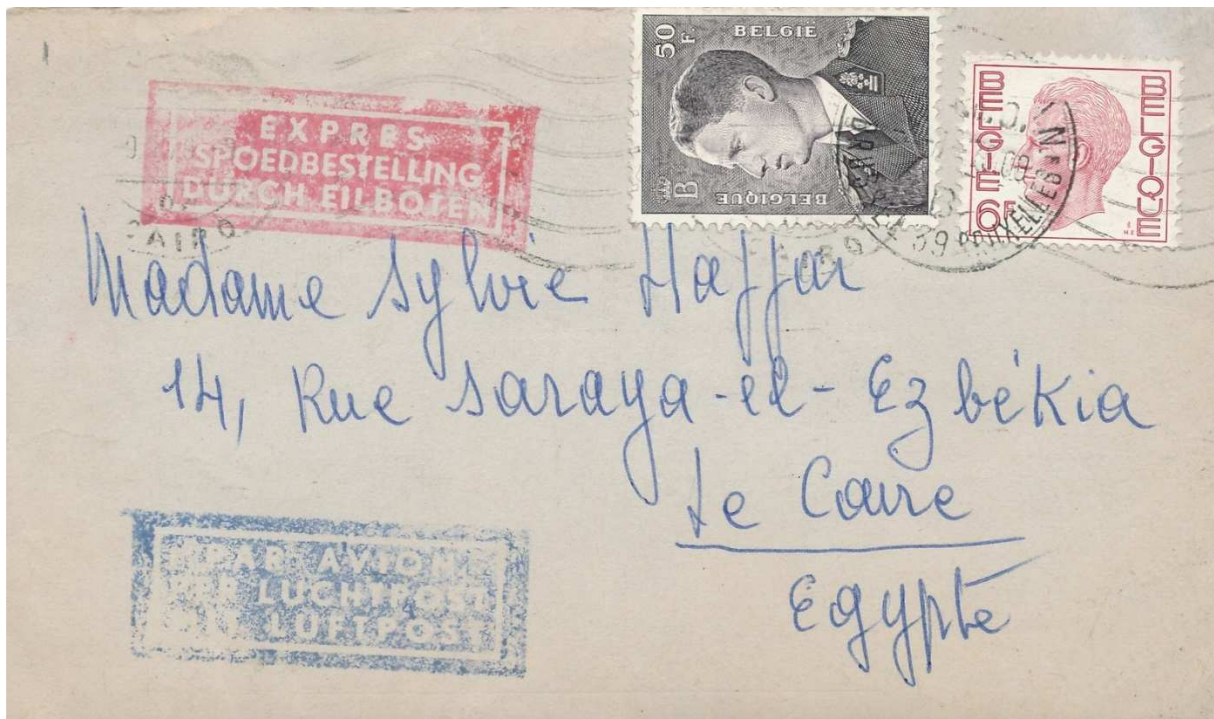 EXPRES
SPOEDBESTELLING
DURCH EILBOTEN
CAIRO
50 F
BELGIË
B
BELGIQUE
BELGIE 6F
BELGIQUE
BRUXELLES
Madame Sylvie Haffar
14, Rue Saraya-el-Ezbékia
Le Caire
Egypte
PAR AVION
PER LUCHTPOST
MIT LUFTPOST